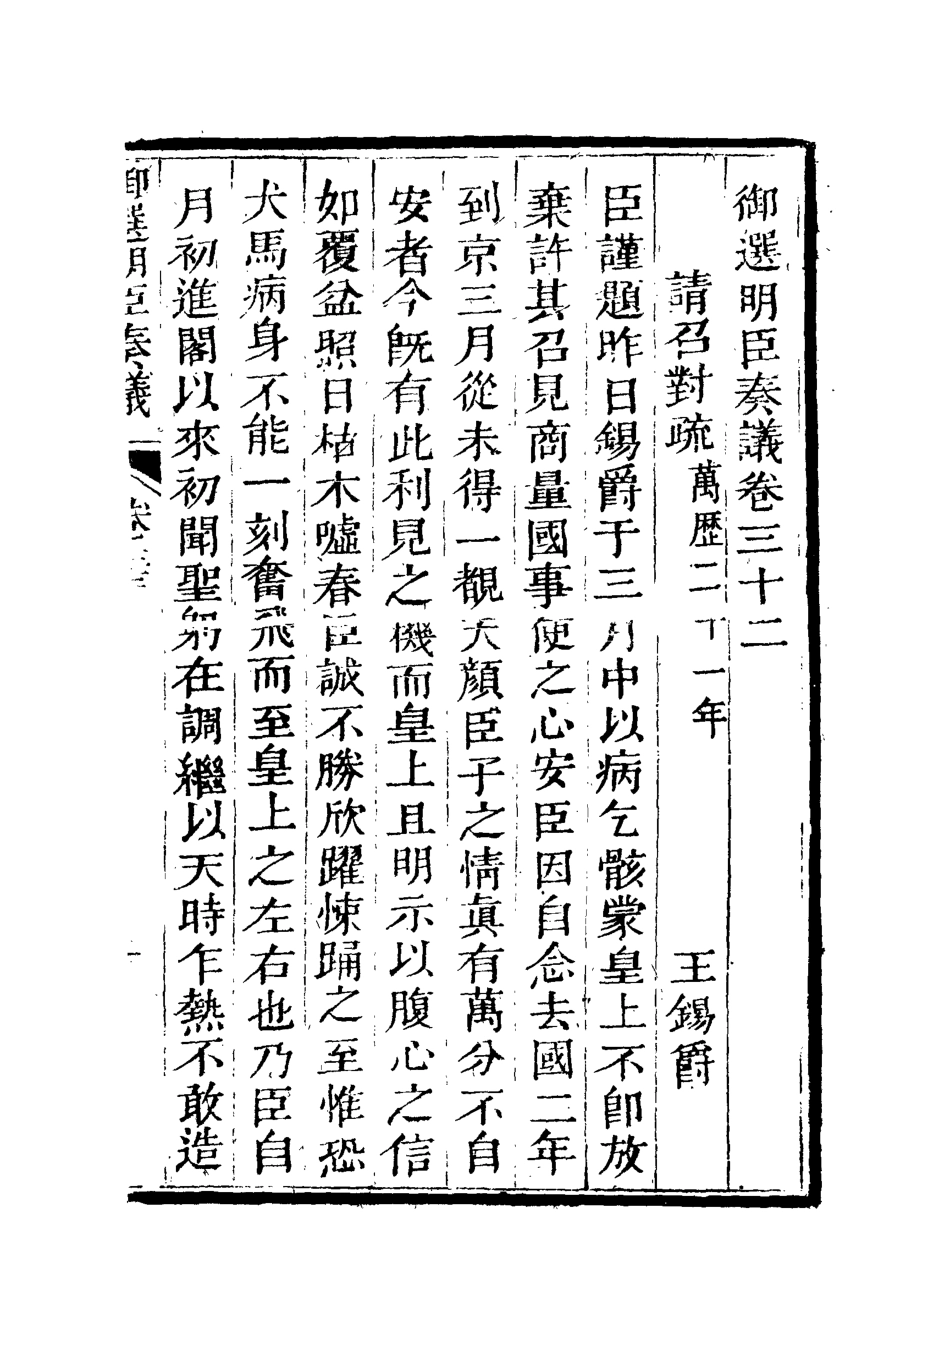 御選明臣奏議卷三十二
請召對疏萬歷二十一年 王錫爵
臣謹題昨日錫爵于三月中以病乞骸蒙皇上不卽放
棄許其召見商量國事便之心安臣因自念去國二年
到京三月從未得一覩天顏臣子之情眞有萬分不自
安者今旣有此利見之機而皇上且明示以腹心之信
如覆盆照日枯木噓春臣誠不勝欣躍悚踊之至惟恐
犬馬病身不能一刻奮飛而至皇上之左右也乃臣自
月初進閣以來初聞聖躬在調繼以天時乍熱不敢造
御選明臣奏議 卷三十二 一